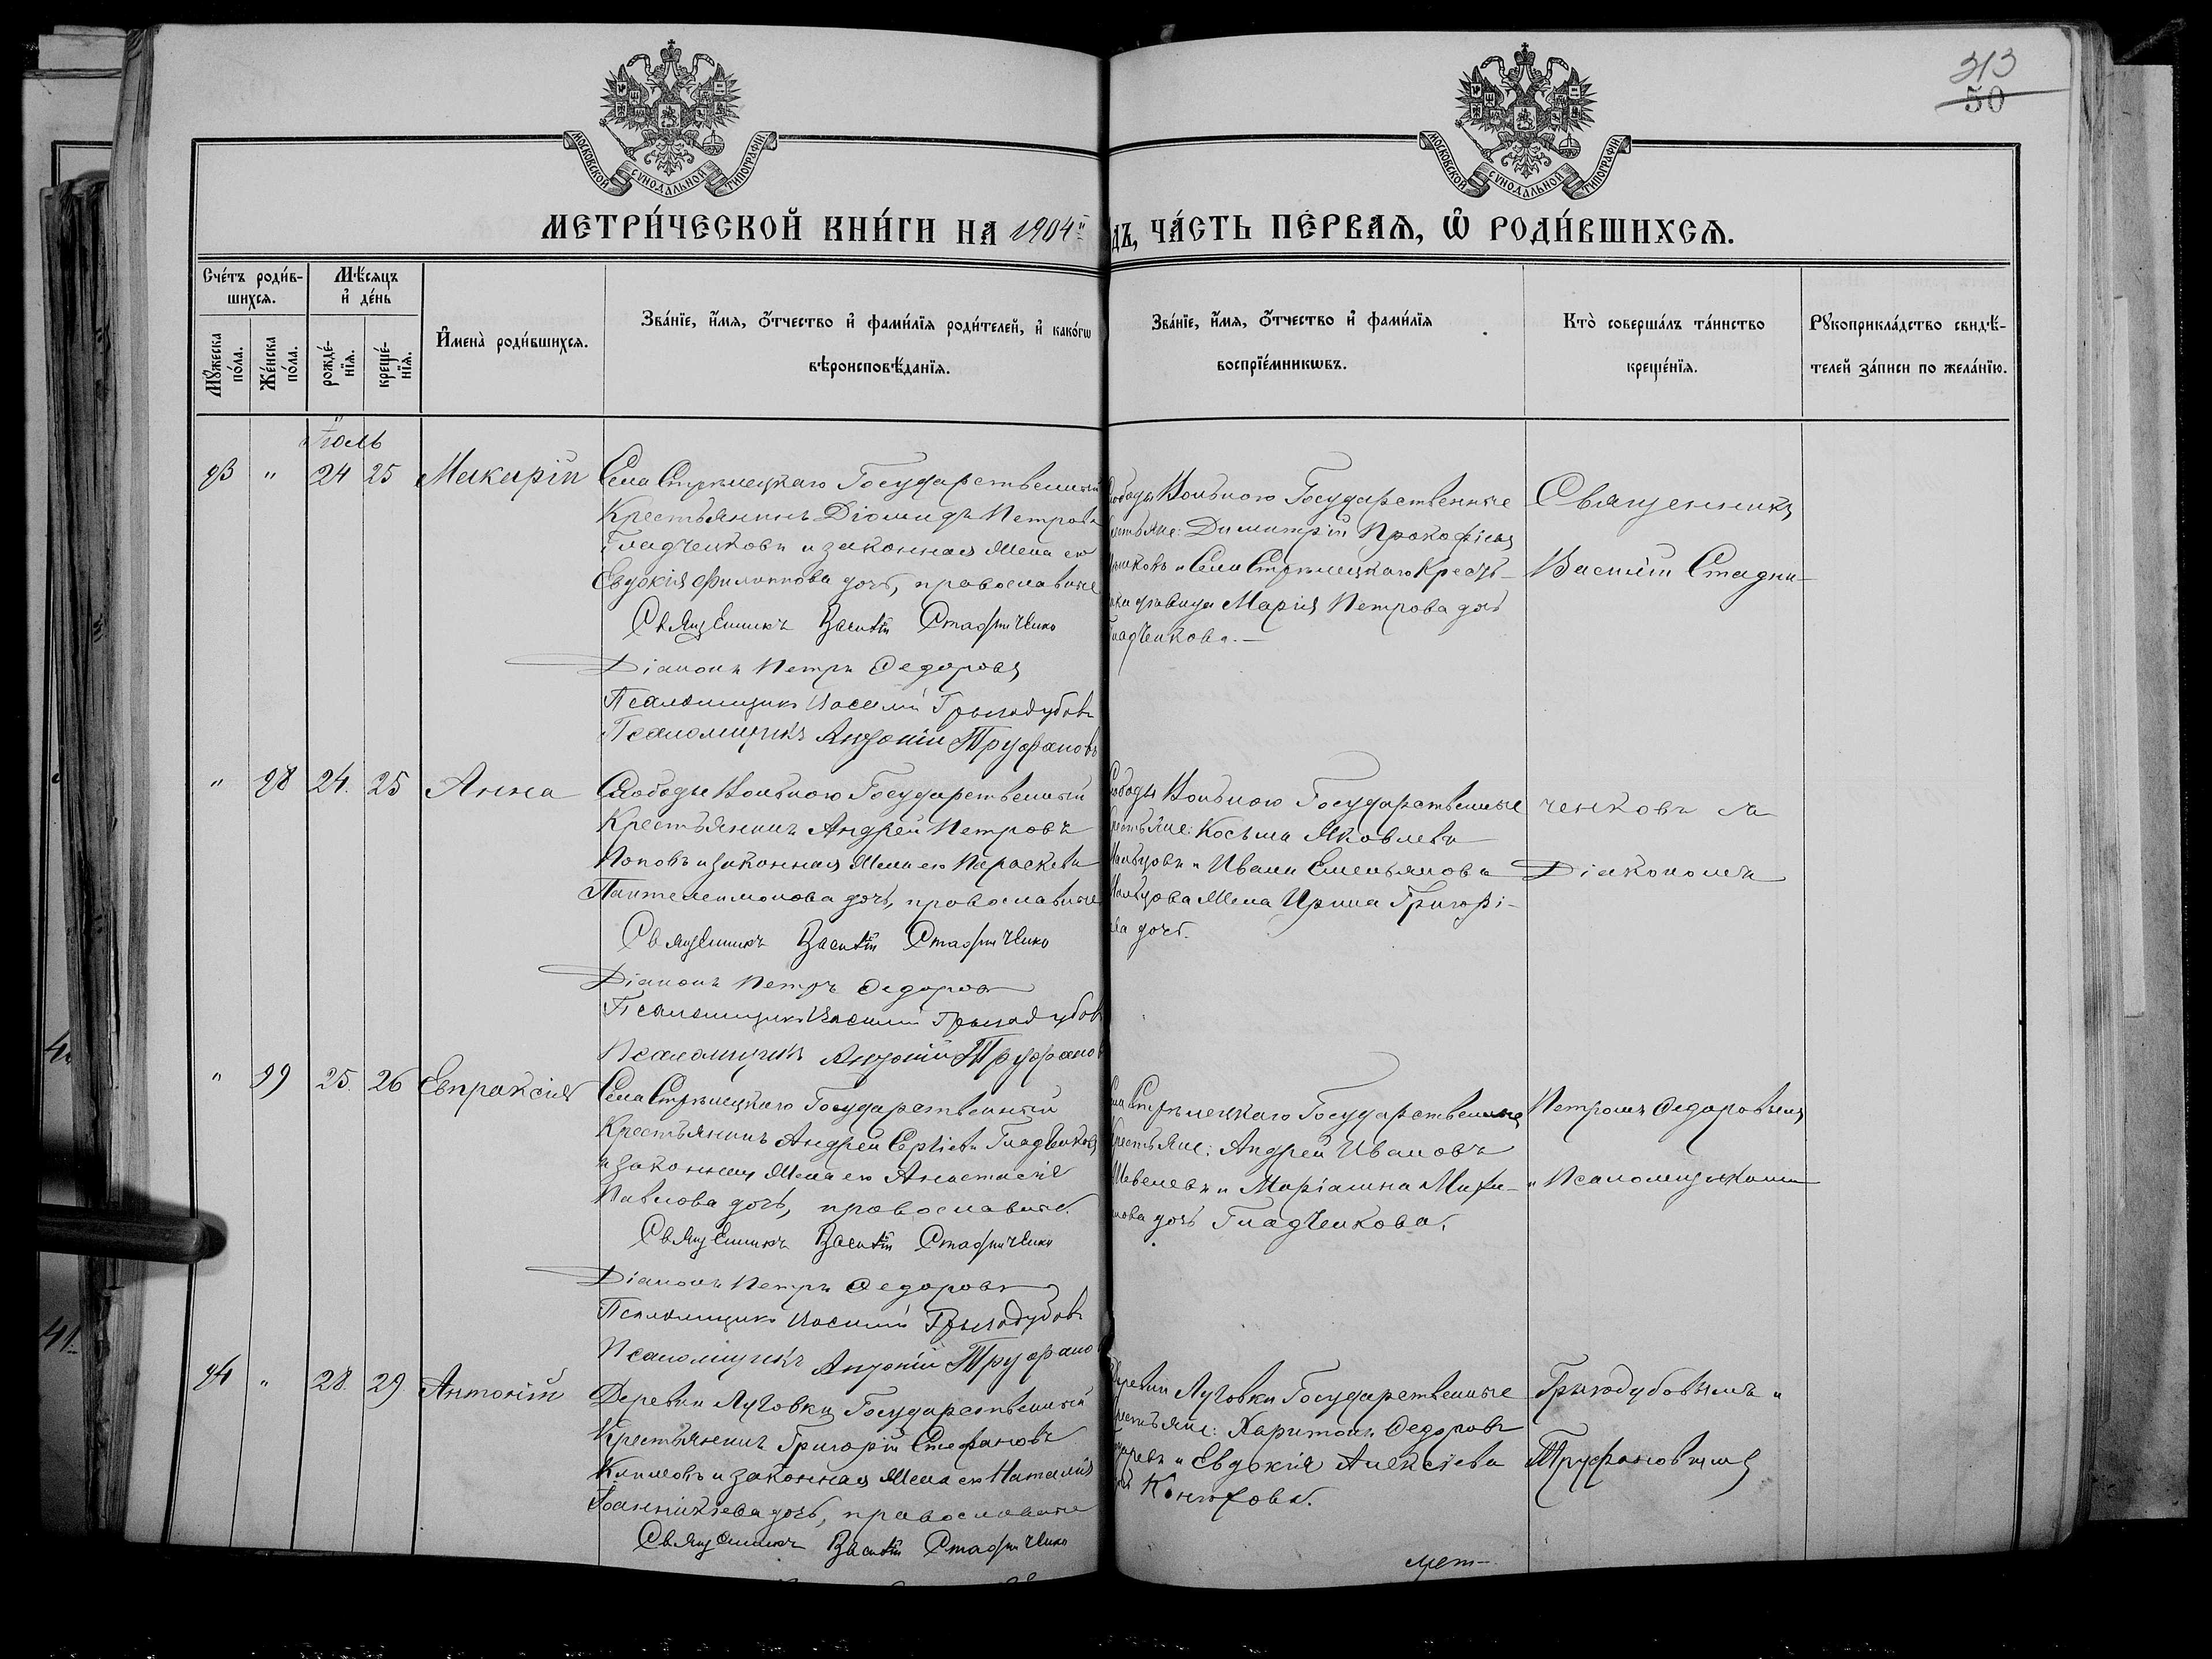 313
50
МОСКОВСКОЙ СѴНОДАЛЬНОЙ ТИПОГРАФІИ
МОСКОВСКОЙ СѴНОДАЛЬНОЙ ТИПОГРАФІИ
МЕТРИ́ЧЕСКОЙ КНИ́ГИ НА 1904й
ДЪ, ЧА́СТЬ ПЕ́РВАЯ, Ѡ РОДИ́ВШИХСЯ.
Сче́тъ роди́в-
шихся.
Му́жеска
по́ла.
Же́нска
по́ла.
Мѣ́сяцъ
и де́нь
рожде́-
нїя.
креще́-
нїя.
И҆мена̀ роди́вшихся.
Зва́нїе, и҆́мя, ѻ҆́тчество и҆ фами́лїя роди́телей, и҆ како́гѡ
вѣроисповѣ́данїя.
Зва́нїе, и҆́мя, ѻ҆́тчество и҆ фами́лїя
воспрїе́мникѡвъ.
Кто̀ соверша́лъ та́инство
креще́нїя.
Рꙋкоприкла́дство свидѣ́-
телей за́писи по жела́нїю.
Іюль
93 " 24 25 Макарій
Села Стрѣлецкаго Государственный
Крестьянинъ Діомидъ Петровъ
Гладченковъ и законная жена его
Евдокія Филиппова дочь, православные
Священникъ Василій Стадниченко
Діаконъ Петръ Ѳедоровъ
Псаломщикъ Василій Грызодубовъ
Псаломщикъ Антоній Труфановъ
ободы Вольного Государственные
стьяне: Димитрій Прокофіевъ
и Села Стрѣлецкаго Кресть-
дѣвица Марія Петрова дочь
ладченкова.—
Священникъ
Василій Стадни-
" 98 24. 25 Анна
Слободы Вольного Государственный
Крестьянинъ Андрей Петровъ
Поповъ и законная жена его Параскева
Пантелеимонова дочь, православные
Священникъ Василій Стадниченко
Діаконъ Петръ Ѳедоровъ
Псаломщикъ Василій Грызодубов
Псаломщикъ Антоній Труфанов
ободы Вольного Государственные
рестьяне: Косьма Яковлевъ
Мальцовъ и Ивана Емельянова
Мальцова жена Ирина Григорі-
ева дочь.
ченковъ съ
Діакономъ
" 99 25. 26 Евпраксія
Села Стрѣлецкаго Государственный
Крестьянинъ Андрей Гладченковъ
и законная жена его Анастасія
Павлова дочь, православные.
Священникъ Василій Стадниченко
Діаконъ Петръ Ѳедоровъ
Псаломщикъ Василій Грызодубовъ
Псаломщикъ Антоній Труфанов
ла Стрѣлецкаго Государственные
рестьяне: Андрей Ивановъ
Шевелевъ и Маріамна
дочь Гладченкова.
Петромъ Ѳедоровымъ
и Псаломщиками
94 " 28. 29 Антоній
Деревни Луговки Государственный
Крестьянинъ Григорій Стефановъ
Климовъ и законная жена его Наталія
Іоанникіева дочь, православные
Священникъ Василій Стадниченко
еревни Луговки Государственные
рестьяне: Харитонъ Ѳедоровъ
и Евдокія Алексіева
Конюхова.
Грызодубовымъ и
Труфановымъ
мет-
4
41.